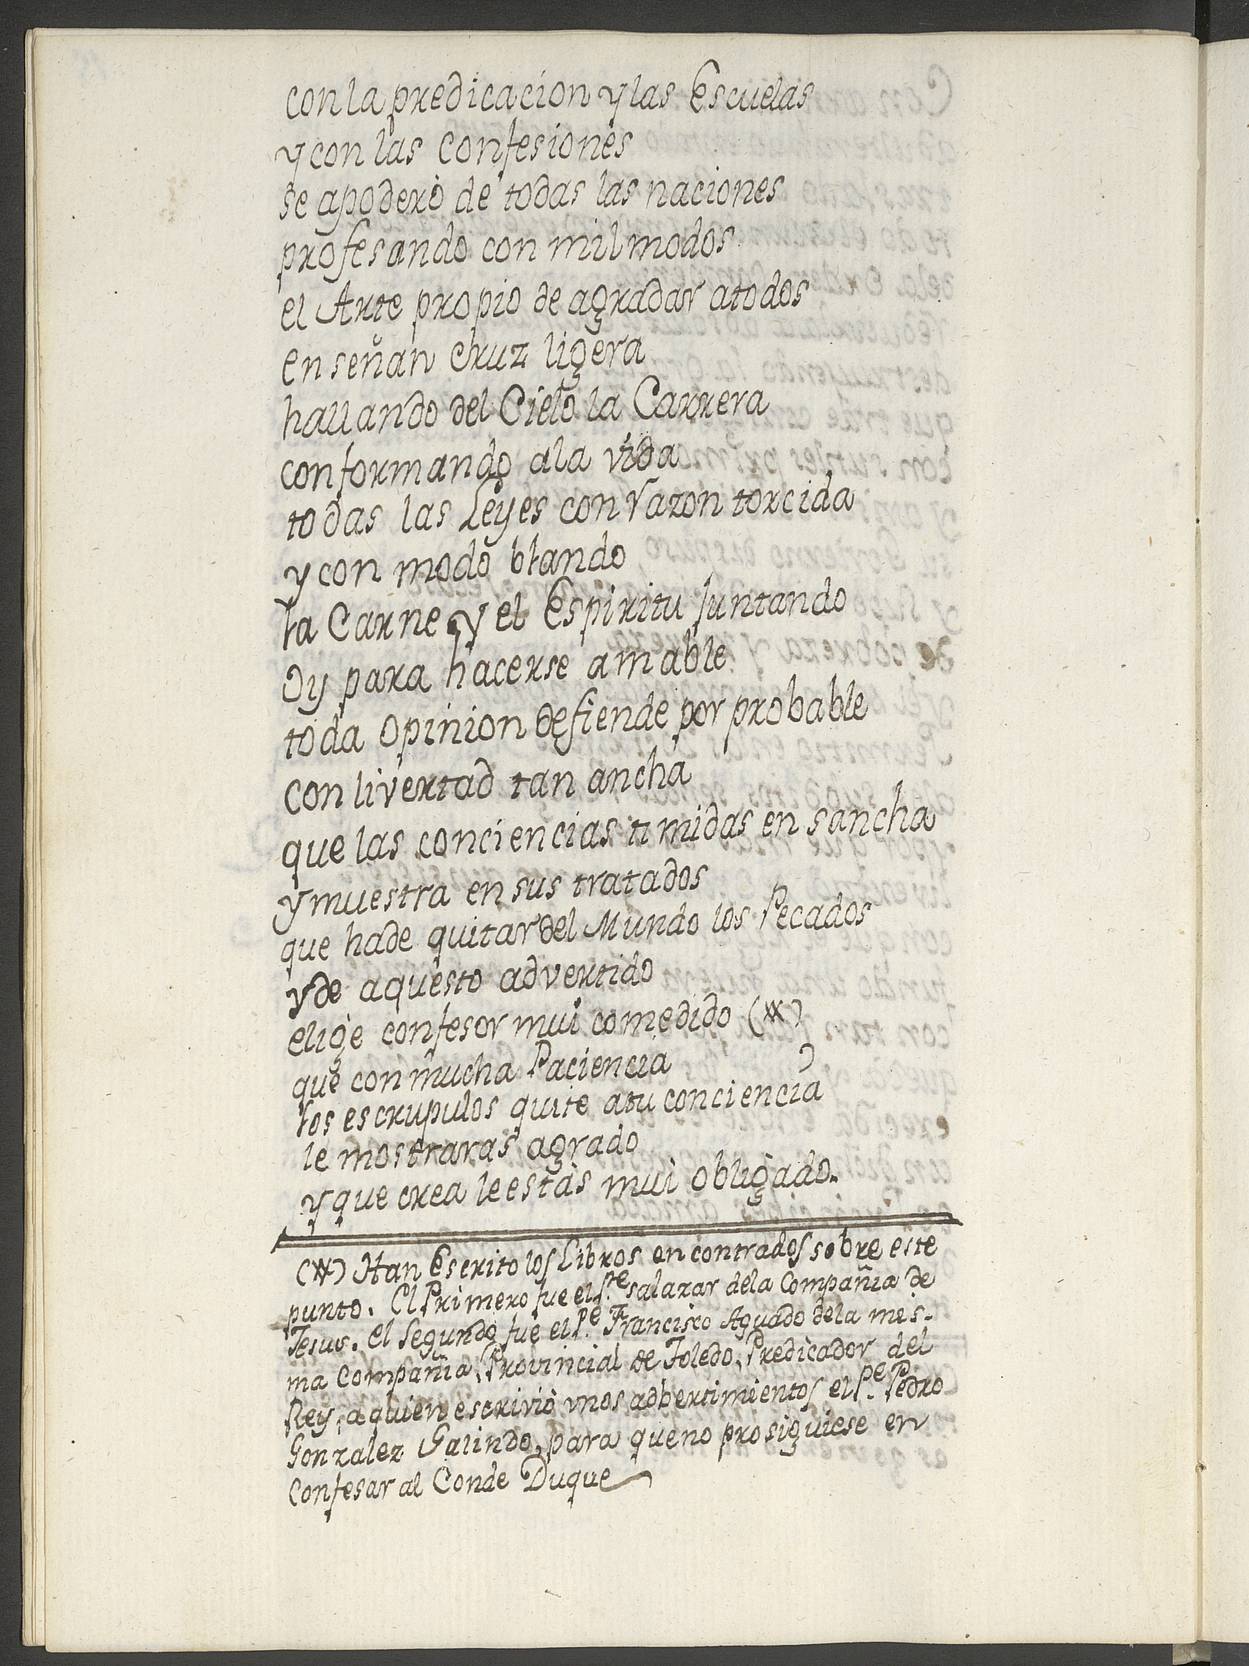 con la predicacion y las Escuelas
y con las Confesiones
se apoderò de todas las naciones
profesando con mil modos
el Arte propio de agradar atodos
enseñan Cruz ligera
hallando del Cielo la Carrera
conformando ala vida
todas las Leyes con razon torcida
y con modo blando
la Carne y el Espiritu juntando
Oy para hacerse amable
toda Opinion defiende por probable
Con livertad tan ancha
que las conciencias timidas ensancha
y muestra en sus tratados
que hade quitar del Mundo los Pecados
y de aquesto advertido
elige confesor mui comedido (*)
que con mucha Paciencia
los escrupulos quite atu conciencia
le mostraras agrado
y que crea le estàs mui obligado.
(*) Han Escrito los Libros encontrados sobre este
punto. El Primero fue el Pe. salazar dela Compañia de
Jesus. el Segundo fue el Pe. Francisco Aguado dela mes-
ma Compañia, Provincial de Toledo, Predicador del
Rey, aquien escriviò unos adbertimientos el Pe. Pedro
Gonzalez Galindo, para queno prosiguiese en
Confesar al Conde Duque